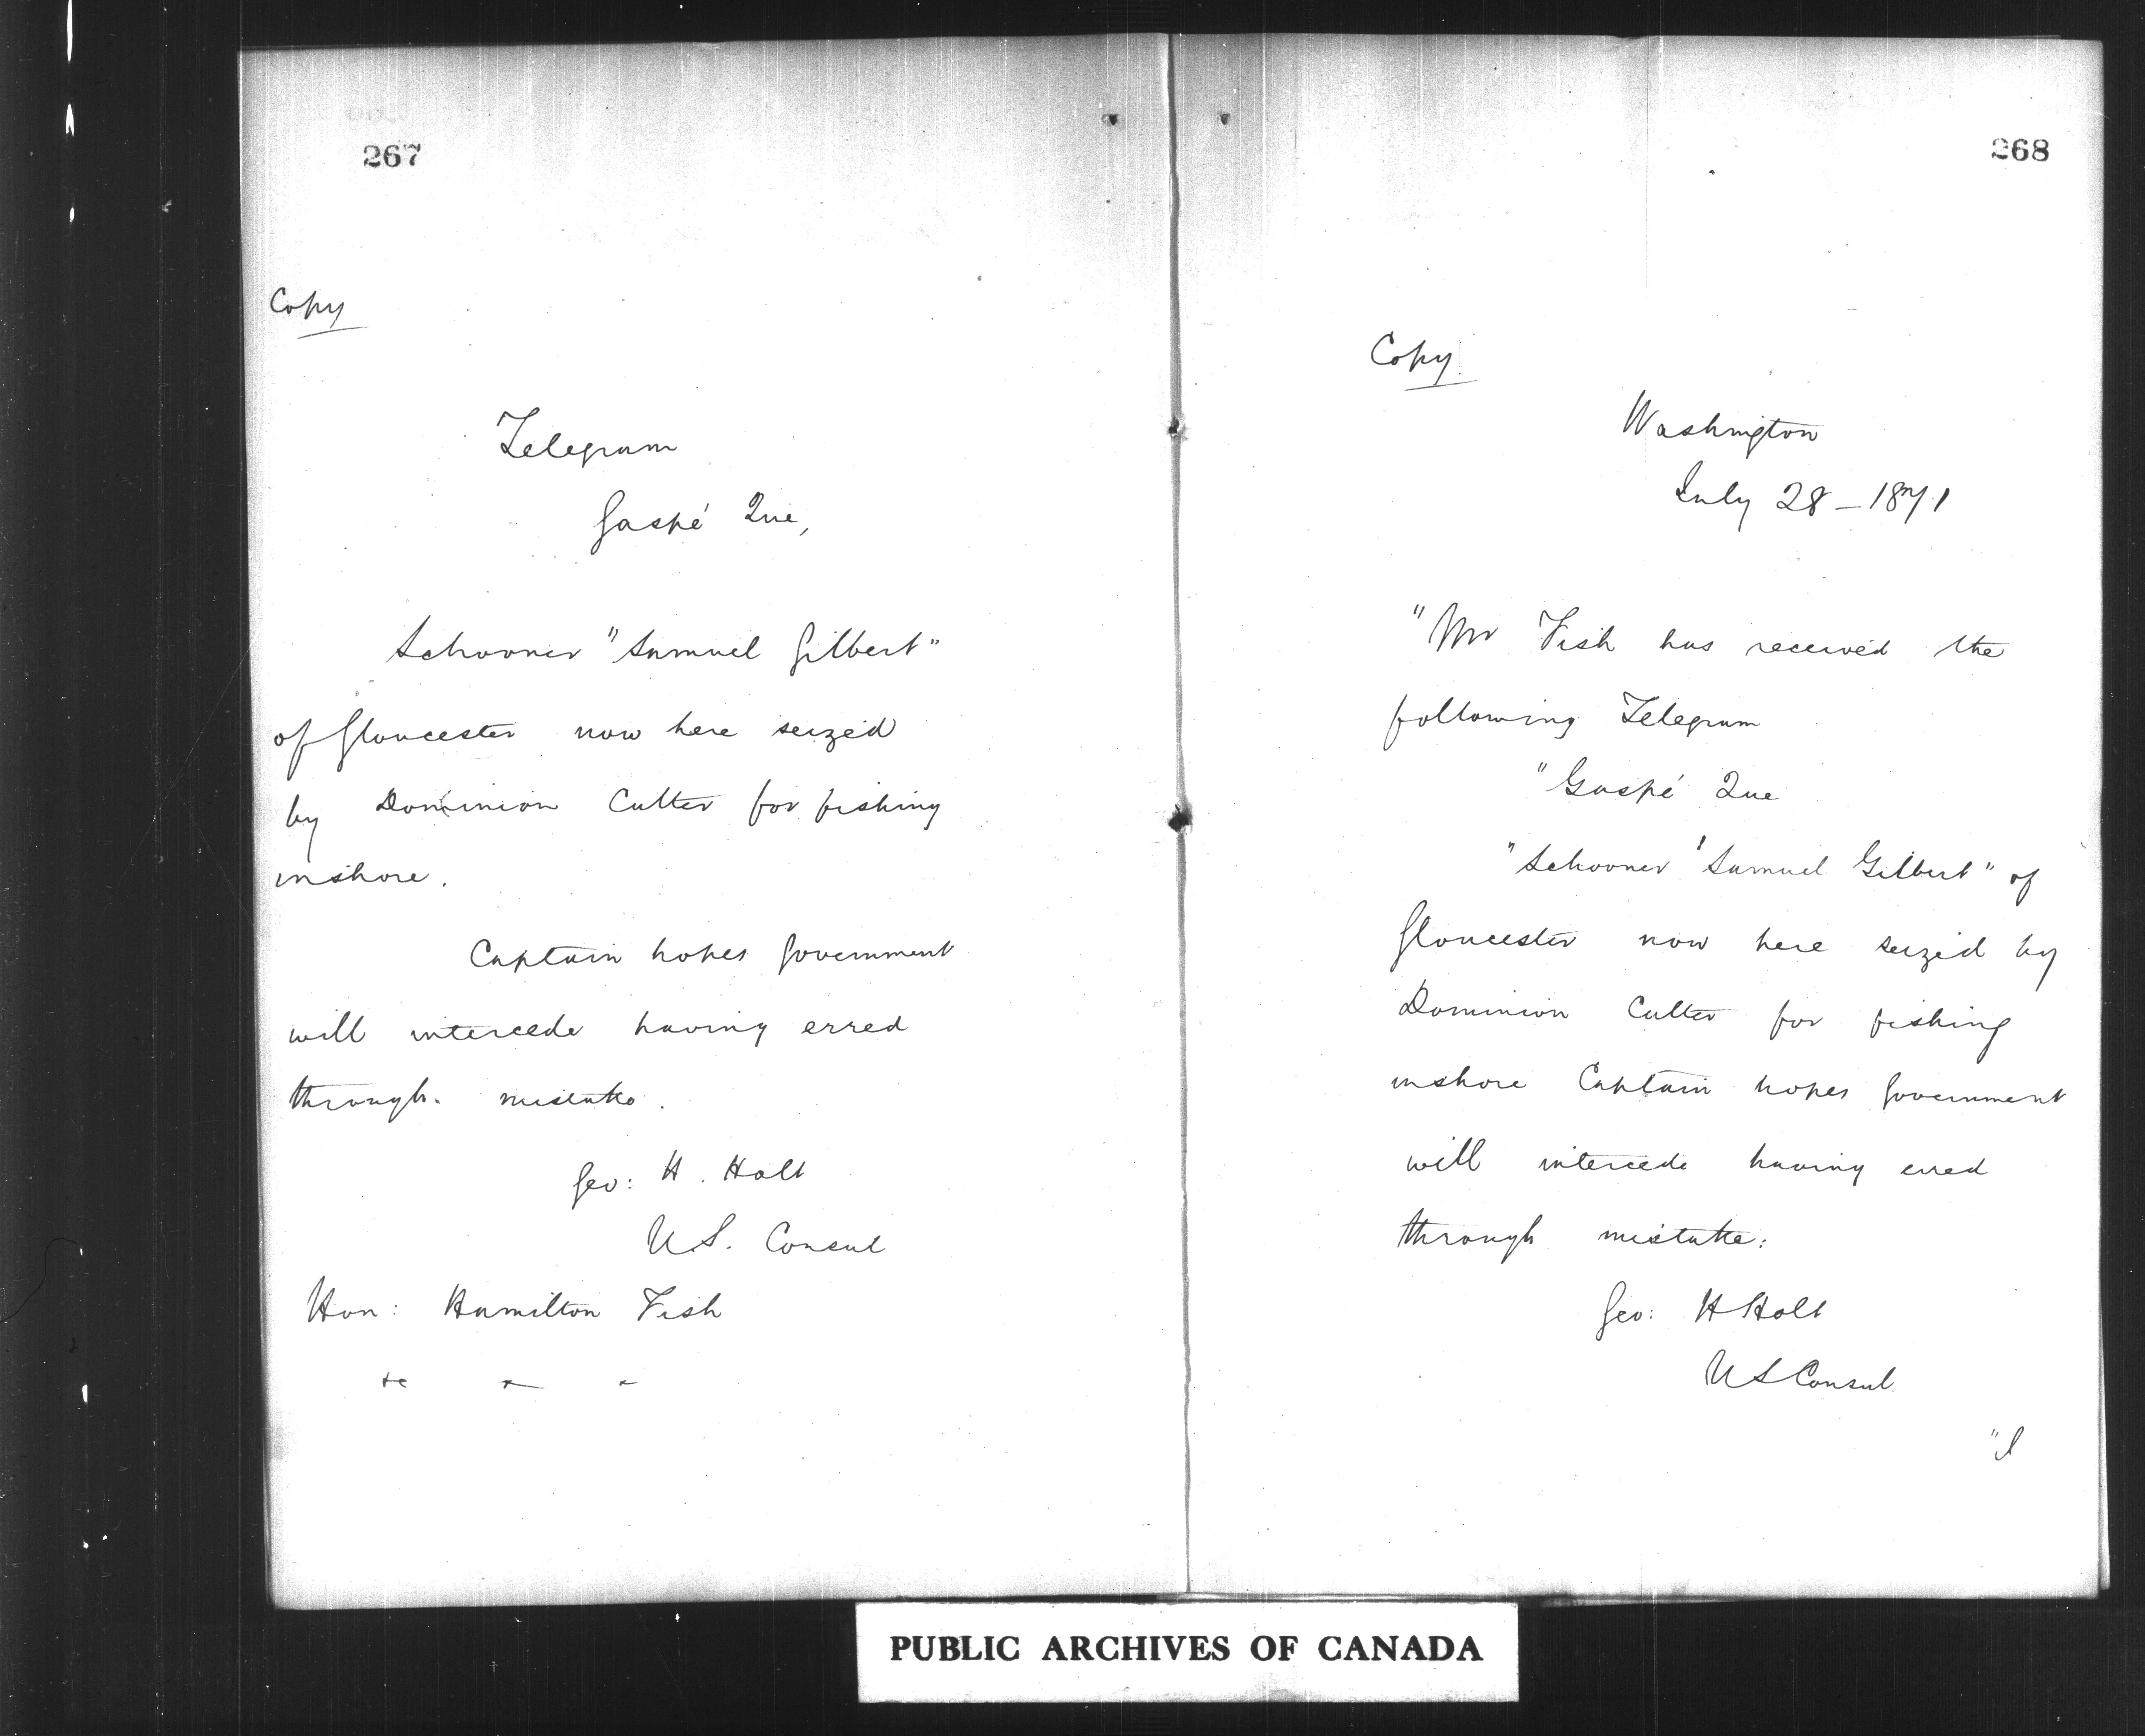 267
Copy
Telegram
Gaspé Que,
Schooner "Samuel Gilbert"
of Gloucester now here seized
by Dominion Cutter for fishing
inshore.
Captain hopes Government
will intercede having erred
through mistake.
Geo: H. Holt
U.S. Consul
Hon: Hamilton Fish
&c
268
Copy.
Washington
July 28 - 1871
"Mr Fish has received the
following Telegram
"Gaspé Que
"Schooner 'Samuel Gilbert" of
Gloucester now here seized by
Dominion Cutter for fishing
inshore Captain hopes Government
will intercede having erred
through mistake:
Geo: H Holt
U S Consul
"I
PUBLIC ARCHIVES OF CANADA